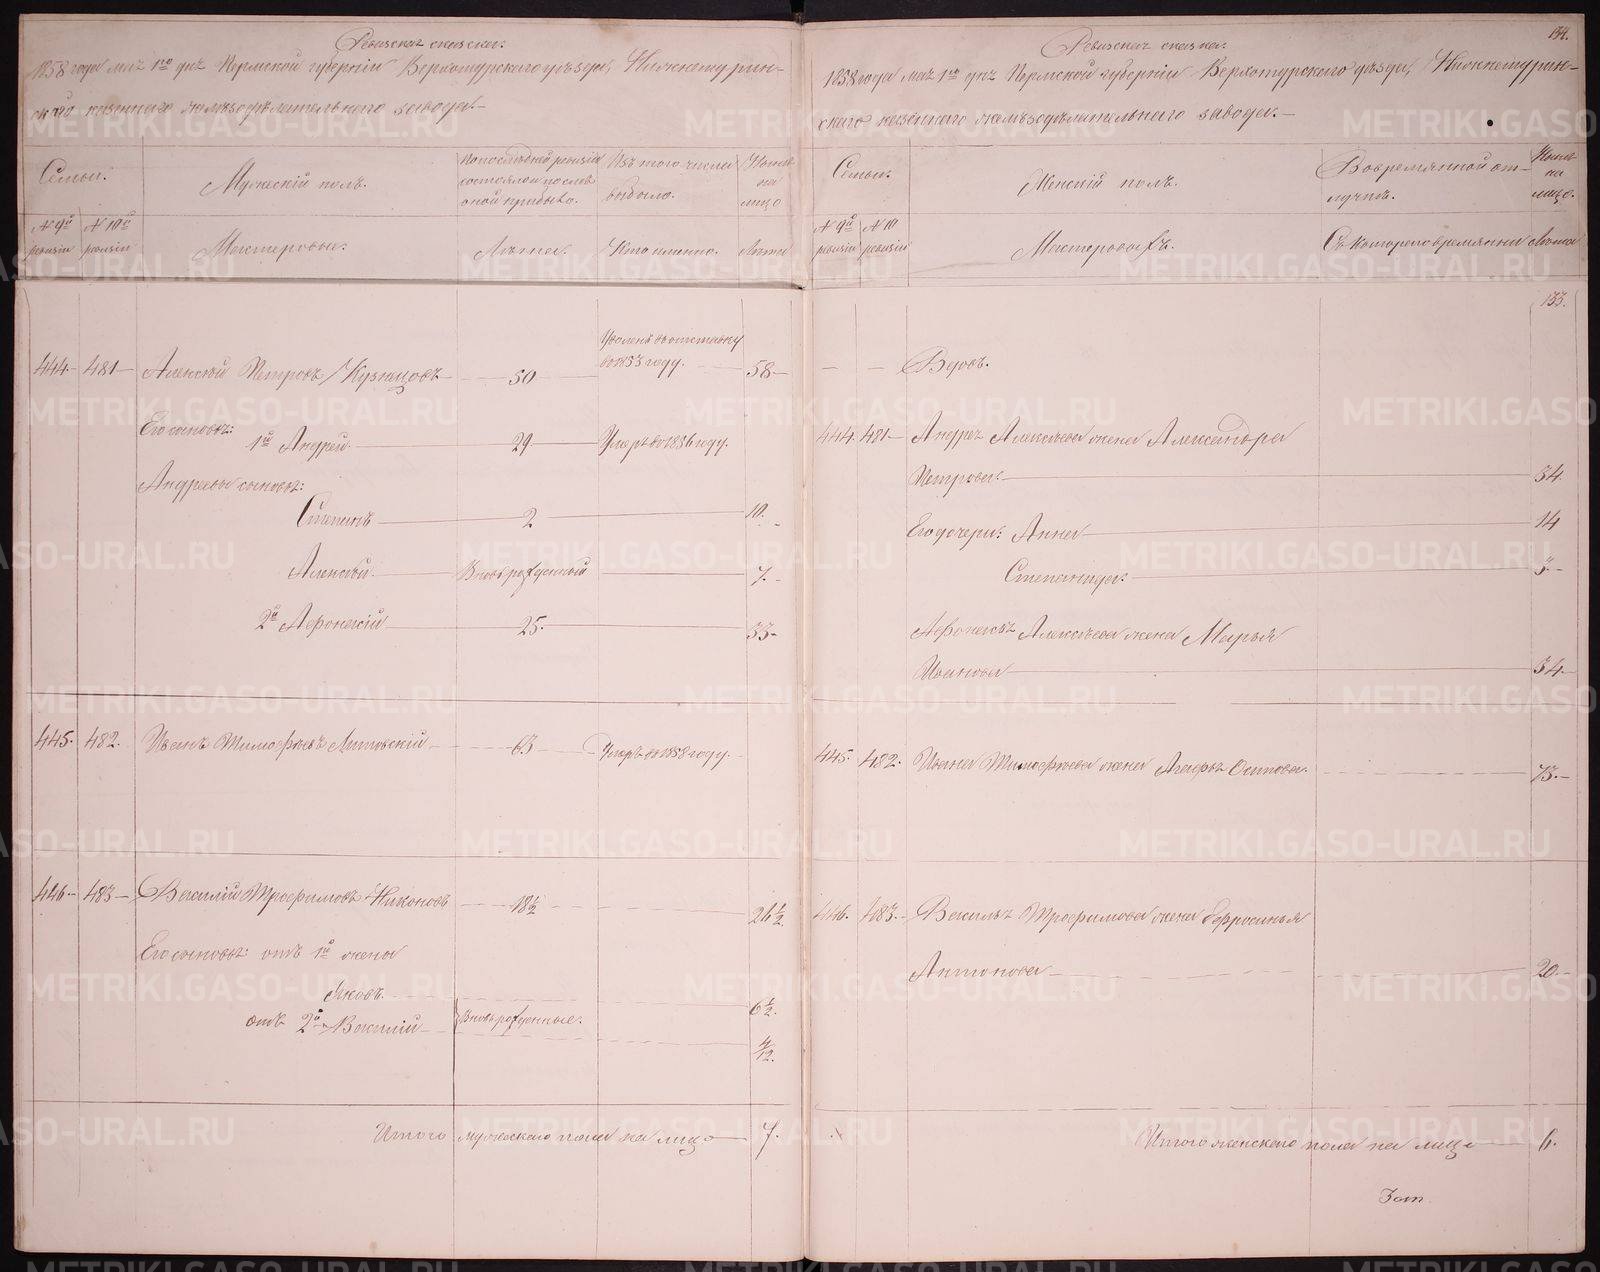 Ревизская сказка.
1858 года мая 1го дня Пермской губерніи Верхотурскаго уѣзда, Нижнетурин-
скаго казеннаго желѣзодѣлательнаго завода.
Семьи.
Мужескій полъ.
По послѣдней ревизіи состояло и послѣ оной прибыло.
Изъ того числа выбыло.
Нынѣ на лицо
№ 9й ревизіи
№ 10й ревизіи
Мастеровые.
Лѣта.
Кто именно.
Лѣта
444 - 481 - Алексѣй Петровъ Кузнцовъ - 50
Уволенъ въ отставку
въ 1853 году.
58 -
Его сыновья:
1й Андрей. 29 Умеръ въ 1856 году.
Андреевы сыновья:
Степанъ 2 10.
Алексѣй. Вновь рожденный 7.
2й Афонасій 25. 33 -
445. 482. Иванъ Тимофѣевъ Литовскій 63 Умеръ въ 1858 году.
446 - 483 - Василій Трофимовъ Никоновъ 18½ 26½
Его сыновья: отъ 1й жены
Яковъ. 6½.
отъ 2й Василій Вновь рожденные. 4/12.
Итого мужескаго пола на лицо 7.
134.
Ревизская сказка.
1858 года мая 1го дня Пермской губерніи Верхотурскаго уѣзда, Нижнетурин-
скаго казеннаго желѣзодѣлательнаго завода. -
Семьи.
Женскій полъ.
Во временной от-
лучкѣ.
Нынѣ на лицо.
№ 9й ревизіи
№ 10 ревизіи
Мастеровыхъ.
Съ котораго времяни
Лѣта
133.
Вдовъ.
444. 481 - Андрея Алексѣева жена Александра
Петрова. 34.
Его дочери: Анна 14
Степанида. 3 -
Афонасья Алексѣева жена Марья
Иванова 34 -
445. 482. Ивана Тимофѣева жена Агафья Осипова. 73. -
446. 483. - Василья Трофимова жена Ефросинья
Антонова 20. -
Итого женскаго пола на лицо 6.